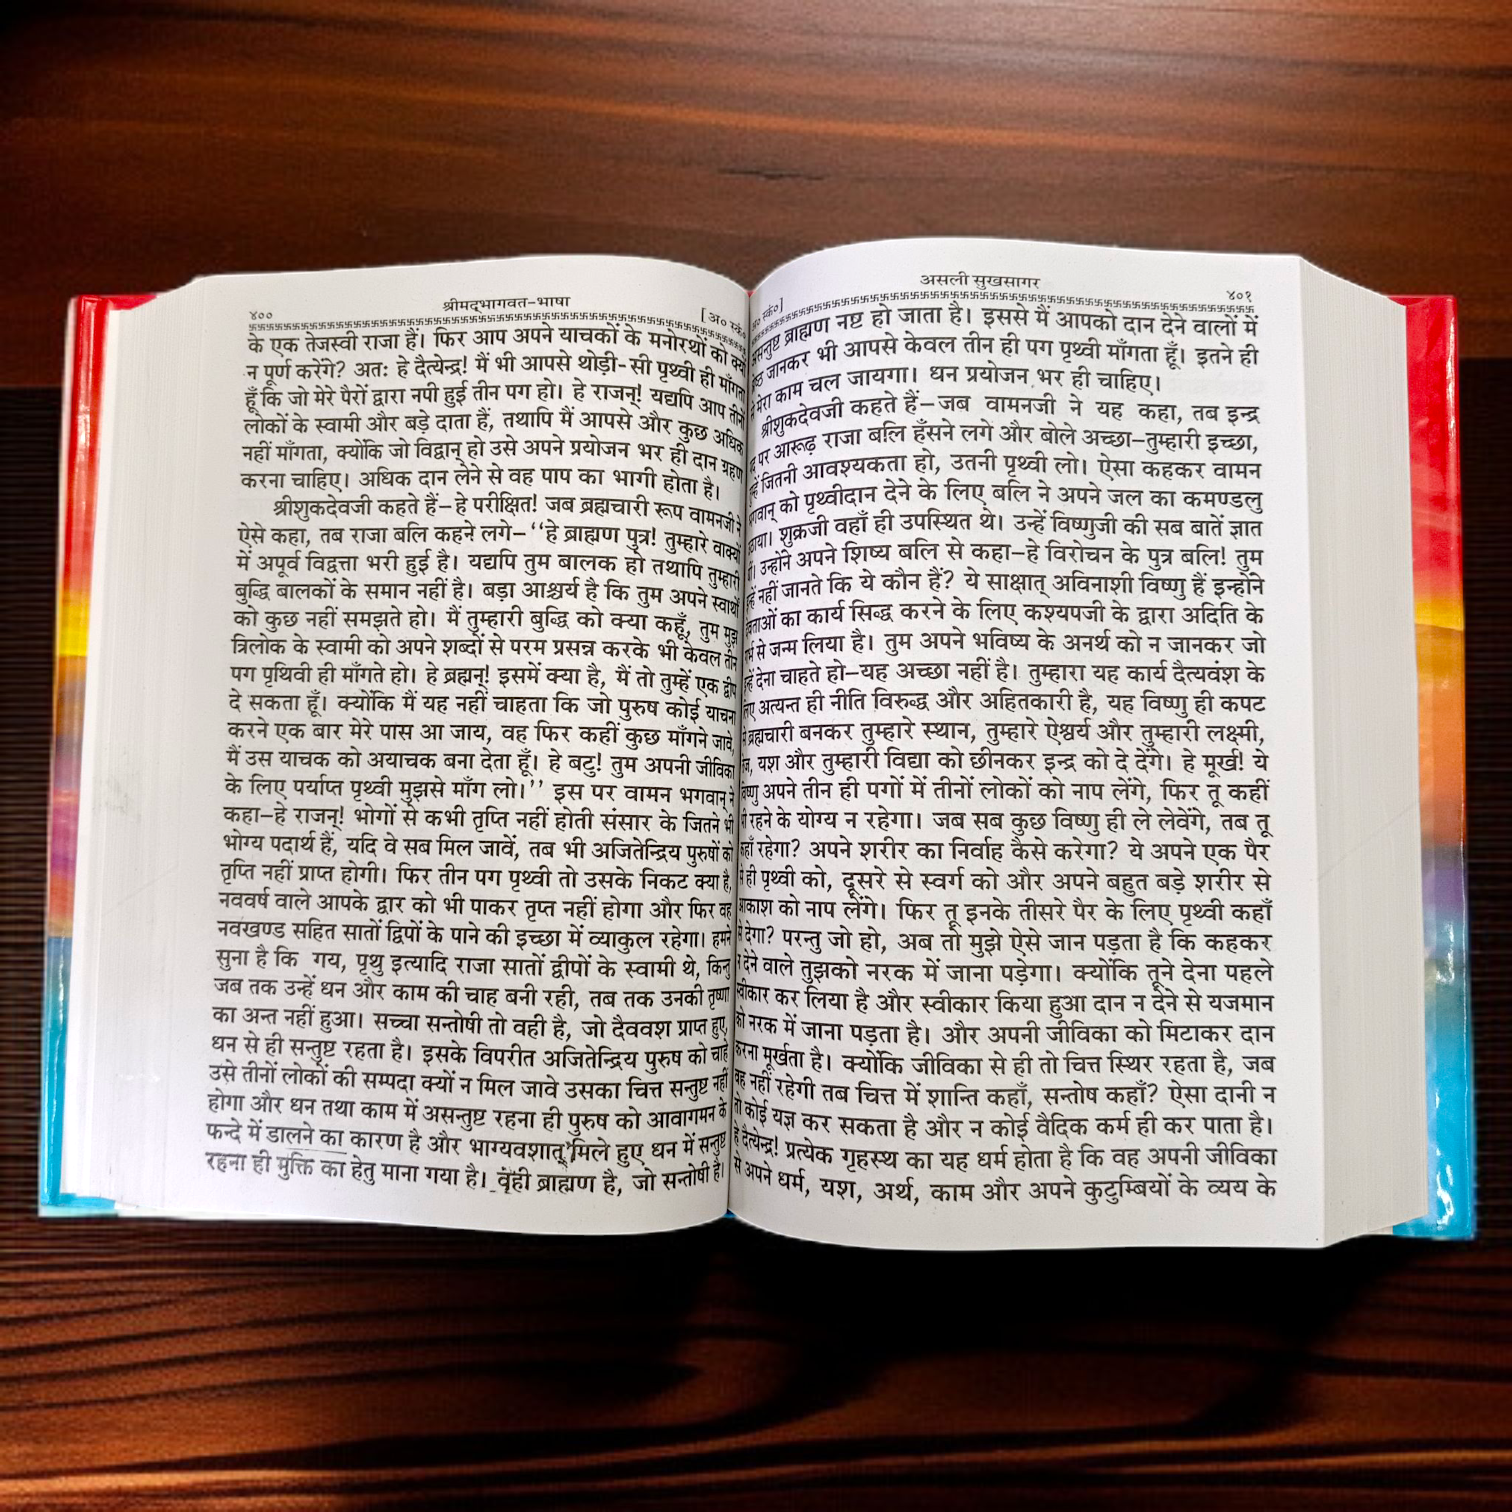 ४००
श्रीमद्भागवत-भाषा
[ अ० स्कं०
के एक तेजस्वी राजा हैं। फिर आप अपने याचकों के मनोरथों को क्यों
न पूर्ण करेंगे? अतः हे दैत्येन्द्र! मैं भी आपसे थोड़ी-सी पृथ्वी ही माँगता
हूँ कि जो मेरे पैरों द्वारा नपी हुई तीन पग हो। हे राजन्! यद्यपि आप तीनों
लोकों के स्वामी और बड़े दाता हैं, तथापि मैं आपसे और कुछ अधिक
नहीं माँगता, क्योंकि जो विद्वान् हो उसे अपने प्रयोजन भर ही दान ग्रहण
करना चाहिए। अधिक दान लेने से वह पाप का भागी होता है।
श्रीशुकदेवजी कहते हैं–हे परीक्षित! जब ब्रह्मचारी रूप वामनजी ने
ऐसे कहा, तब राजा बलि कहने लगे–‘‘हे ब्राह्मण पुत्र! तुम्हारे वाक्यों
में अपूर्व विद्वत्ता भरी हुई है। यद्यपि तुम बालक हो तथापि तुम्हारी
बुद्धि बालकों के समान नहीं है। बड़ा आश्चर्य है कि तुम अपने स्वार्थों
को कुछ नहीं समझते हो। मैं तुम्हारी बुद्धि को क्या कहूँ, तुम मुझ
त्रिलोक के स्वामी को अपने शब्दों से परम प्रसन्न करके भी केवल तीन
पग पृथिवी ही माँगते हो। हे ब्रह्मन्! इसमें क्या है, मैं तो तुम्हें एक द्वीप
दे सकता हूँ। क्योंकि मैं यह नहीं चाहता कि जो पुरुष कोई याचना
करने एक बार मेरे पास आ जाय, वह फिर कहीं कुछ माँगने जावे,
मैं उस याचक को अयाचक बना देता हूँ। हे बटु! तुम अपनी जीविका
के लिए पर्याप्त पृथ्वी मुझसे माँग लो।’’ इस पर वामन भगवान् ने
कहा–हे राजन्! भोगों से कभी तृप्ति नहीं होती संसार के जितने भी
भोग्य पदार्थ हैं, यदि वे सब मिल जावें, तब भी अजितेन्द्रिय पुरुषों को
तृप्ति नहीं प्राप्त होगी। फिर तीन पग पृथ्वी तो उसके निकट क्या है,
नववर्ष वाले आपके द्वार को भी पाकर तृप्त नहीं होगा और फिर वह
नवखण्ड सहित सातों द्विपों के पाने की इच्छा में व्याकुल रहेगा। हमने
सुना है कि गय, पृथु इत्यादि राजा सातों द्वीपों के स्वामी थे, किन्तु
जब तक उन्हें धन और काम की चाह बनी रही, तब तक उनकी तृष्णा
का अन्त नहीं हुआ। सच्चा सन्तोषी तो वही है, जो दैववश प्राप्त हुए,
धन से ही सन्तुष्ट रहता है। इसके विपरीत अजितेन्द्रिय पुरुष को चाहे
उसे तीनों लोकों की सम्पदा क्यों न मिल जावे उसका चित्त सन्तुष्ट नहीं
होगा और धन तथा काम में असन्तुष्ट रहना ही पुरुष को आवागमन के
फन्दे में डालने का कारण है और भाग्यवशात् मिले हुए धन में सन्तुष्ट
रहना ही मुक्ति का हेतु माना गया है। वृंही ब्राह्मण है, जो सन्तोषी है।
असली सुखसागर
४०१
अ० स्कं०]
असन्तुष्ट ब्राह्मण नष्ट हो जाता है। इससे मैं आपको दान देने वालों में
जानकर भी आपसे केवल तीन ही पग पृथ्वी माँगता हूँ। इतने ही
मेरा काम चल जायगा। धन प्रयोजन भर ही चाहिए।
श्रीशुकदेवजी कहते हैं–जब वामनजी ने यह कहा, तब इन्द्र
पर आरूढ़ राजा बलि हँसने लगे और बोले अच्छा–तुम्हारी इच्छा,
जितनी आवश्यकता हो, उतनी पृथ्वी लो। ऐसा कहकर वामन
को पृथ्वीदान देने के लिए बलि ने अपने जल का कमण्डलु
शुक्रजी वहाँ ही उपस्थित थे। उन्हें विष्णुजी की सब बातें ज्ञात
उन्होंने अपने शिष्य बलि से कहा–हे विरोचन के पुत्र बलि! तुम
नहीं जानते कि ये कौन हैं? ये साक्षात् अविनाशी विष्णु हैं इन्होंने
का कार्य सिद्ध करने के लिए कश्यपजी के द्वारा अदिति के
से जन्म लिया है। तुम अपने भविष्य के अनर्थ को न जानकर जो
देना चाहते हो–यह अच्छा नहीं है। तुम्हारा यह कार्य दैत्यवंश के
अत्यन्त ही नीति विरुद्ध और अहितकारी है, यह विष्णु ही कपट
ब्रह्मचारी बनकर तुम्हारे स्थान, तुम्हारे ऐश्वर्य और तुम्हारी लक्ष्मी,
यश और तुम्हारी विद्या को छीनकर इन्द्र को दे देंगे। हे मूर्ख! ये
विष्णु अपने तीन ही पगों में तीनों लोकों को नाप लेंगे, फिर तू कहीं
रहने के योग्य न रहेगा। जब सब कुछ विष्णु ही ले लेवेंगे, तब तू
रहेगा? अपने शरीर का निर्वाह कैसे करेगा? ये अपने एक पैर
से ही पृथ्वी को, दूसरे से स्वर्ग को और अपने बहुत बड़े शरीर से
आकाश को नाप लेंगे। फिर तू इनके तीसरे पैर के लिए पृथ्वी कहाँ
से देगा? परन्तु जो हो, अब तो मुझे ऐसे जान पड़ता है कि कहकर
न देने वाले तुझको नरक में जाना पड़ेगा। क्योंकि तूने देना पहले
स्वीकार कर लिया है और स्वीकार किया हुआ दान न देने से यजमान
को नरक में जाना पड़ता है। और अपनी जीविका को मिटाकर दान
करना मूर्खता है। क्योंकि जीविका से ही तो चित्त स्थिर रहता है, जब
वह नहीं रहेगी तब चित्त में शान्ति कहाँ, सन्तोष कहाँ? ऐसा दानी न
तो कोई यज्ञ कर सकता है और न कोई वैदिक कर्म ही कर पाता है।
हे दैत्येन्द्र! प्रत्येक गृहस्थ का यह धर्म होता है कि वह अपनी जीविका
से अपने धर्म, यश, अर्थ, काम और अपने कुटुम्बियों के व्यय के